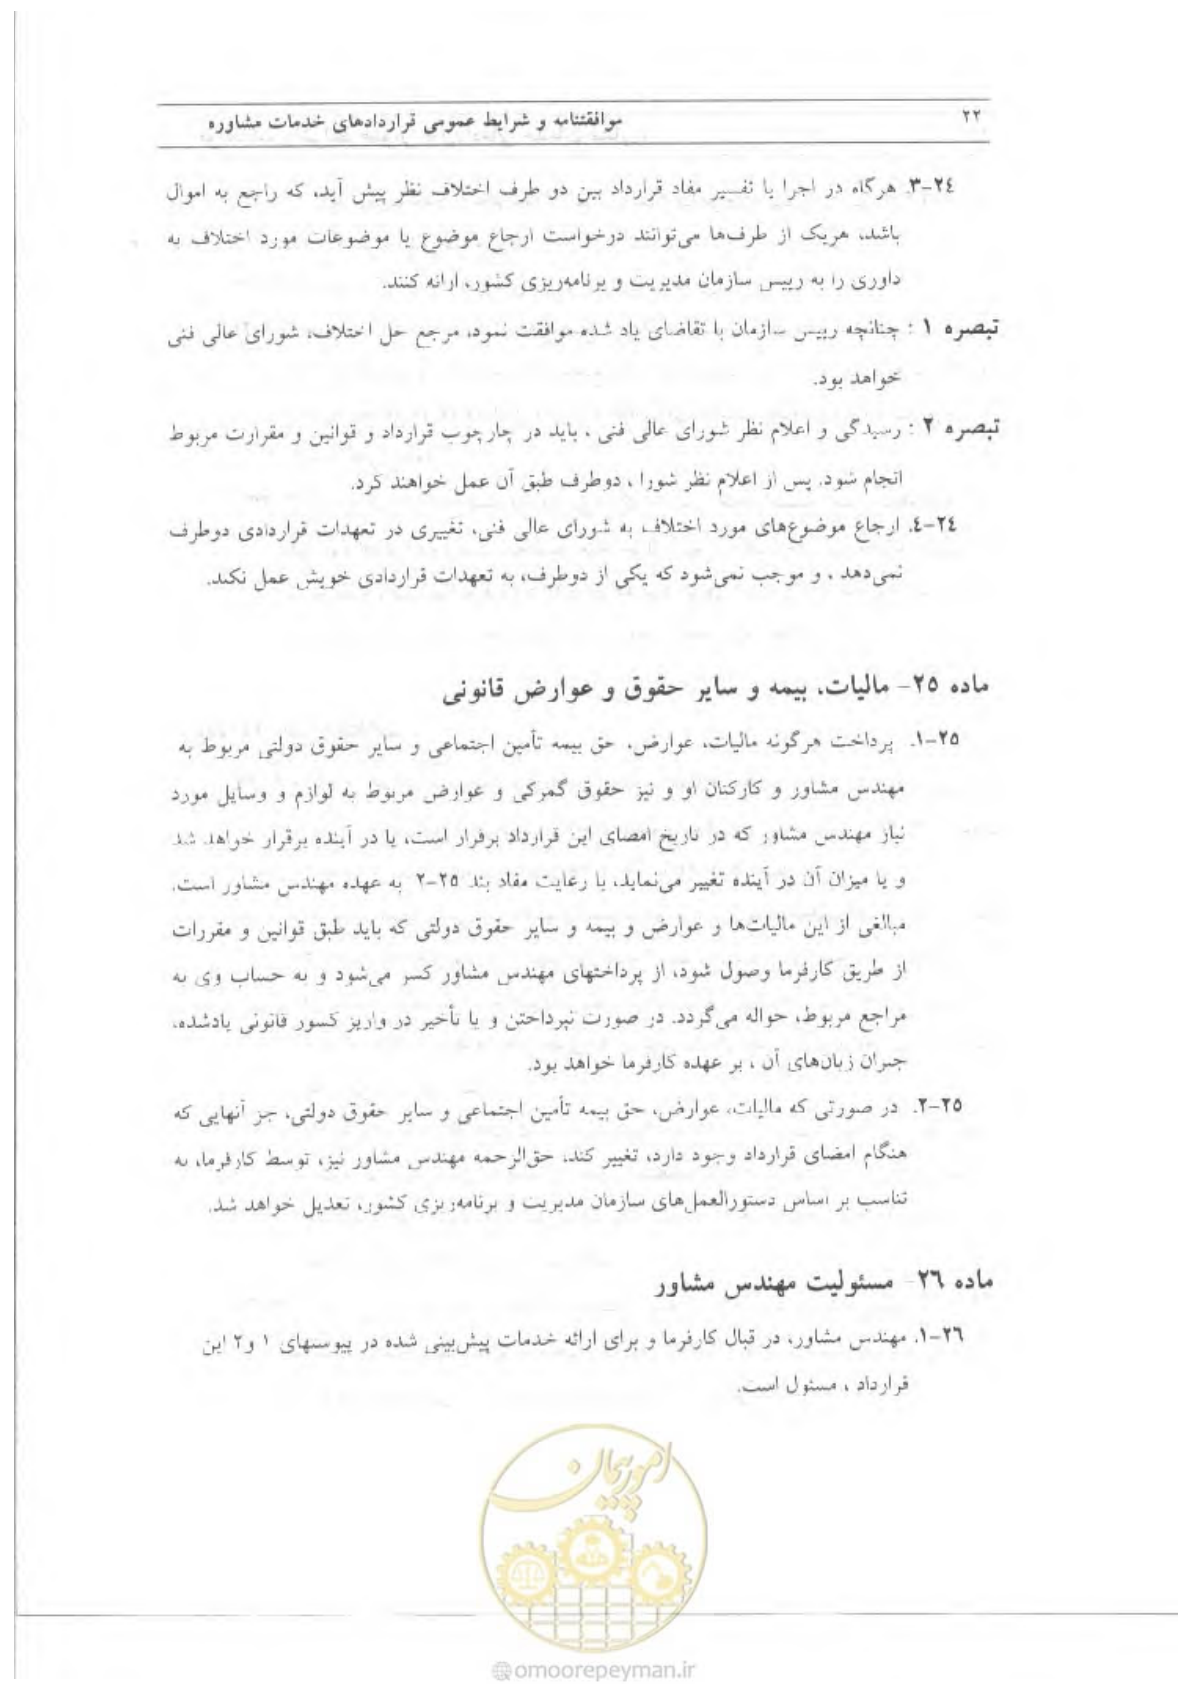 ۲۲ موافقتنامه و شرایط عمومی قراردادهای خدمات مشاوره
۲۴-۳. هرگاه در اجرا یا تفسیر مفاد قرارداد بین دو طرف اختلاف نظر پیش آید، که راجع به اموال
باشد، هریک از طرف‌ها می‌توانند درخواست ارجاع موضوع یا موضوعات مورد اختلاف به
داوری را به رییس سازمان مدیریت و برنامه‌ریزی کشور، ارائه کنند.
تبصره ۱ : چنانچه رییس سازمان با تقاضای یاد شده موافقت نمود، مرجع حل اختلاف، شورای عالی فنی
خواهد بود.
تبصره ۲ : رسیدگی و اعلام نظر شورای عالی فنی ، باید در چارچوب قرارداد و قوانین و مقرارت مربوط
انجام شود. پس از اعلام نظر شورا ، دوطرف طبق آن عمل خواهند کرد.
۲۴-۴. ارجاع موضوع‌های مورد اختلاف به شورای عالی فنی، تغییری در تعهدات قراردادی دوطرف
نمی‌دهد ، و موجب نمی‌شود که یکی از دوطرف، به تعهدات قراردادی خویش عمل نکند.
ماده ۲۵- مالیات، بیمه و سایر حقوق و عوارض قانونی
۲۵-۱. پرداخت هرگونه مالیات، عوارض، حق بیمه تأمین اجتماعی و سایر حقوق دولتی مربوط به
مهندس مشاور و کارکنان او و نیز حقوق گمرکی و عوارض مربوط به لوازم و وسایل مورد
نیاز مهندس مشاور که در تاریخ امضای این قرارداد برقرار است، یا در آینده برقرار خواهد شد
و یا میزان آن در آینده تغییر می‌نماید، با رعایت مفاد بند ۲۵-۲ به عهده مهندس مشاور است.
مبالغی از این مالیات‌ها و عوارض و بیمه و سایر حقوق دولتی که باید طبق قوانین و مقررات
از طریق کارفرما وصول شود، از پرداختهای مهندس مشاور کسر می‌شود و به حساب وی به
مراجع مربوط، حواله می‌گردد. در صورت نپرداختن و یا تأخیر در واریز کسور قانونی یادشده،
جبران زیان‌های آن ، بر عهده کارفرما خواهد بود.
۲۵-۲. در صورتی که مالیات، عوارض، حق بیمه تأمین اجتماعی و سایر حقوق دولتی، جز آنهایی که
هنگام امضای قرارداد وجود دارد، تغییر کند، حق‌الزحمه مهندس مشاور نیز، توسط کارفرما، به
تناسب بر اساس دستورالعمل‌های سازمان مدیریت و برنامه‌ریزی کشور، تعدیل خواهد شد.
ماده ۲۶- مسئولیت مهندس مشاور
۲۶-۱. مهندس مشاور، در قبال کارفرما و برای ارائه خدمات پیش‌بینی شده در پیوستهای ۱ و۲ این
قرارداد ، مسئول است.
امور پیمان
@omoorepeyman.ir